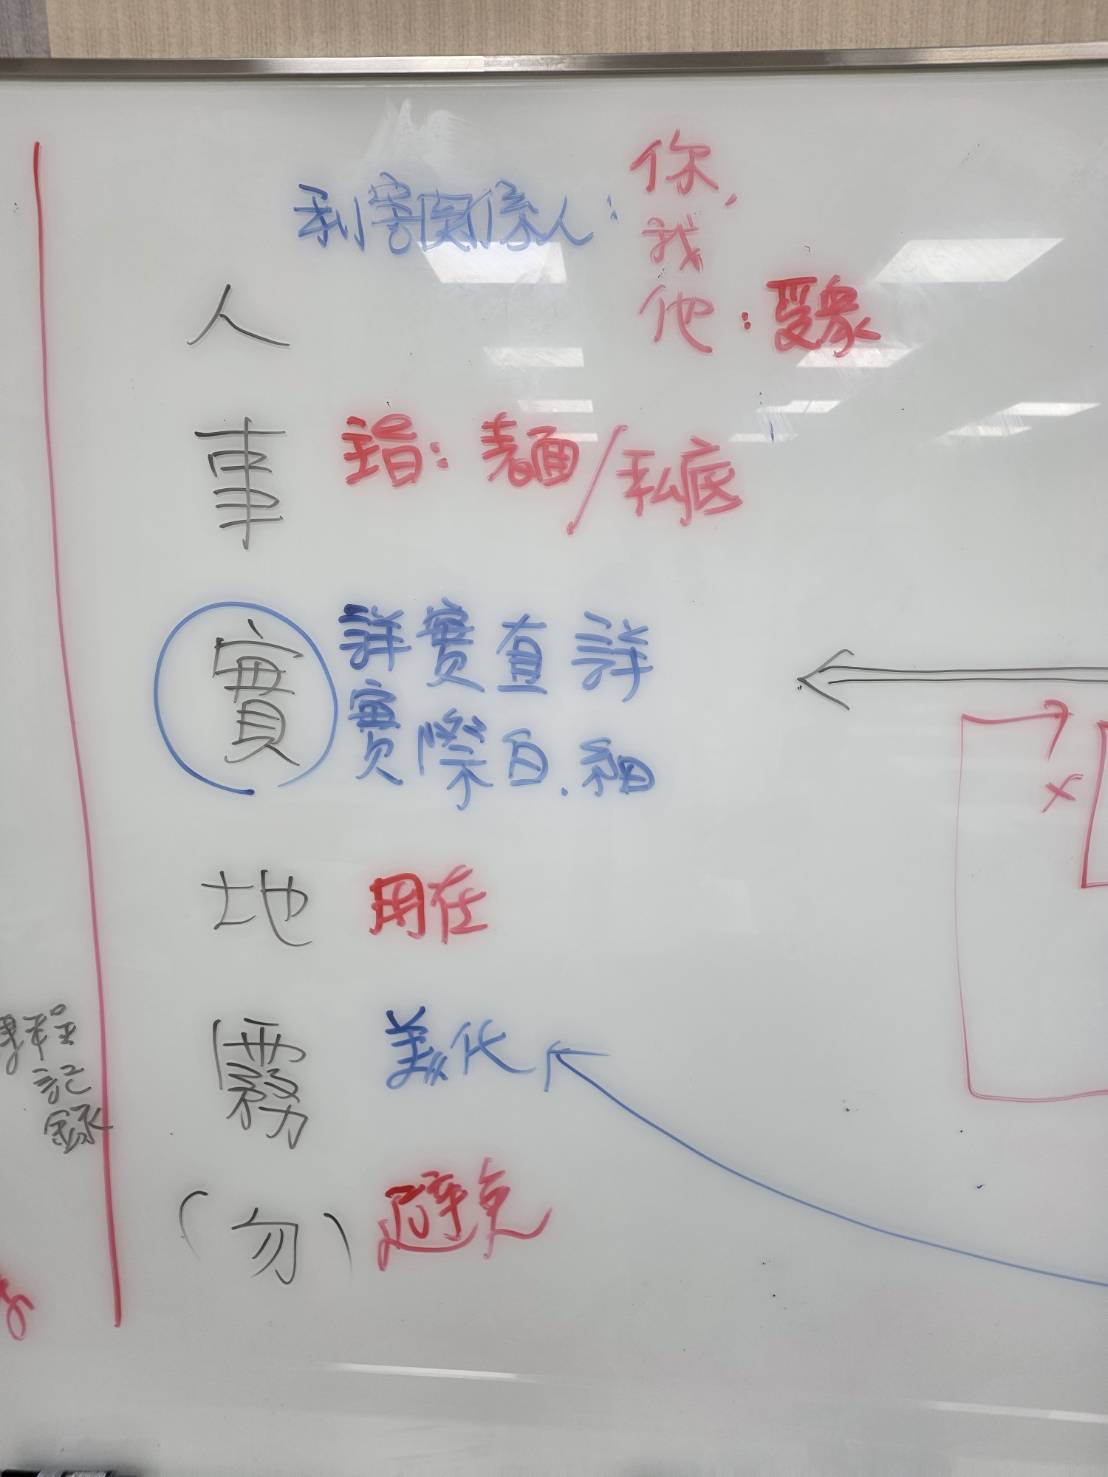 利害関係人：你，
我
他：受眾
人
事 主旨：表面/私底
實 詳實直詳
實際白.細
地 用在
霧 美化
(勿) 避免
x
程
記
錄